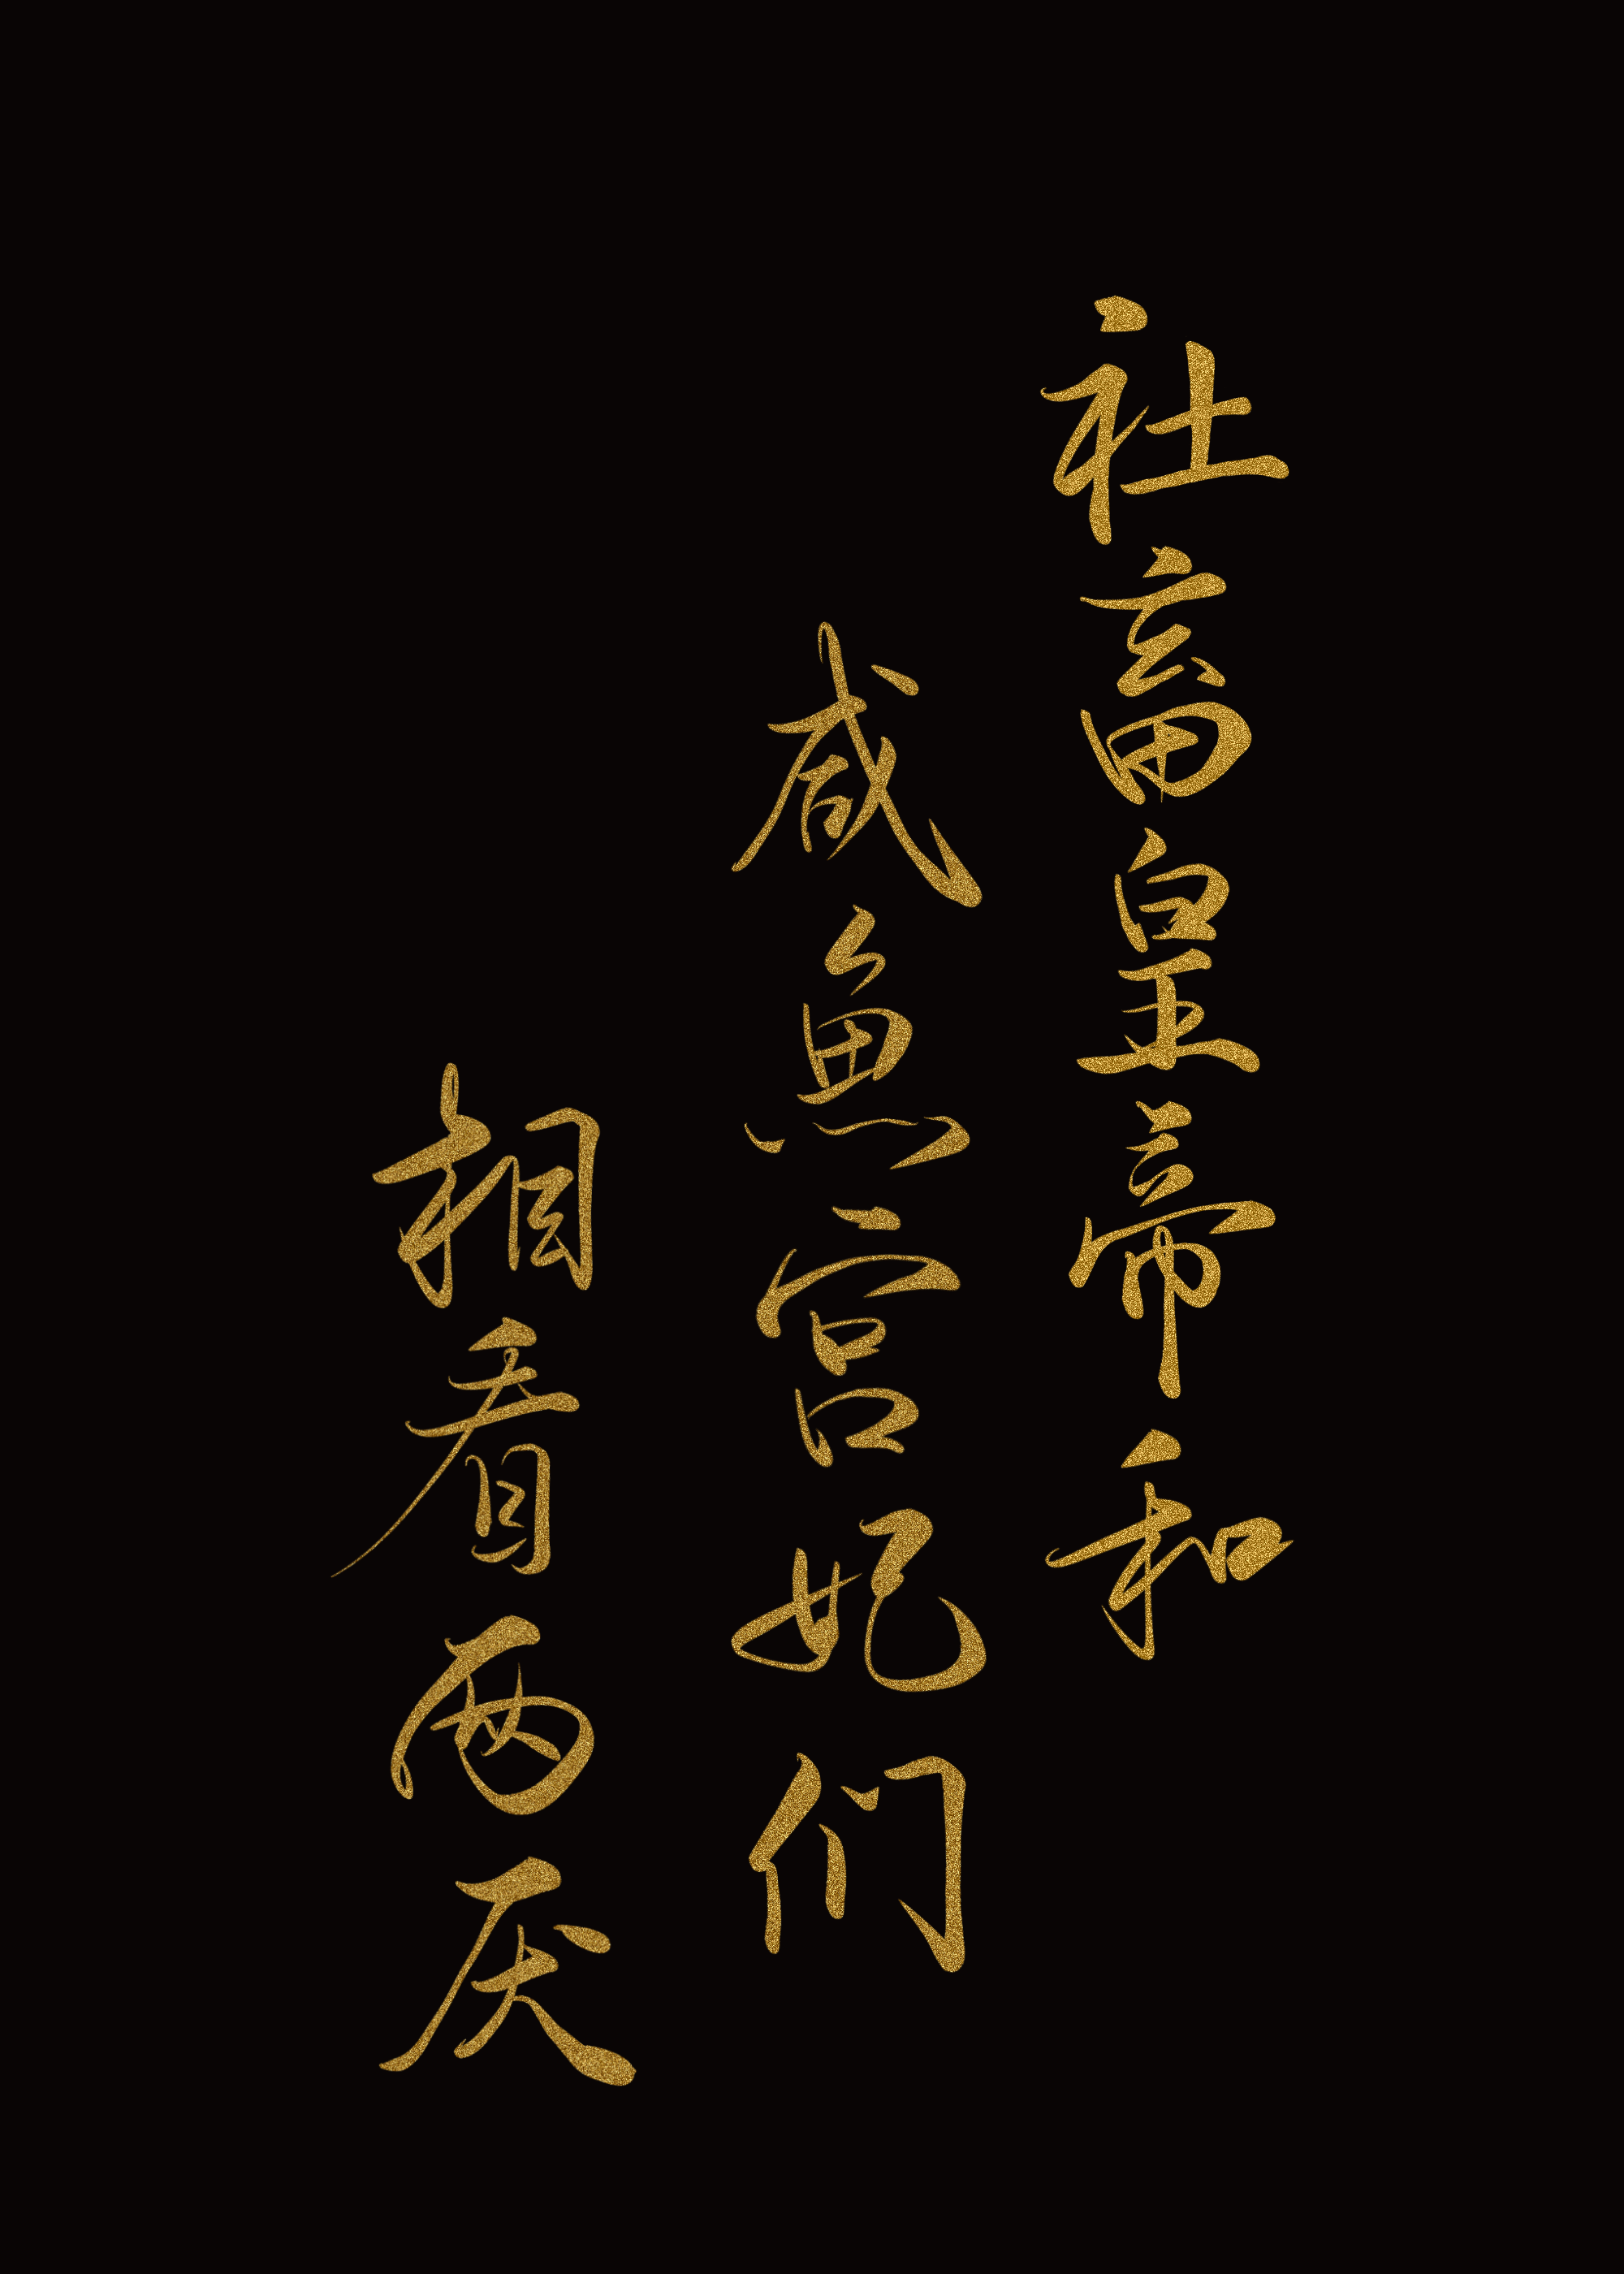 社畜皇帝和
咸鱼宫妃们
相看两厌